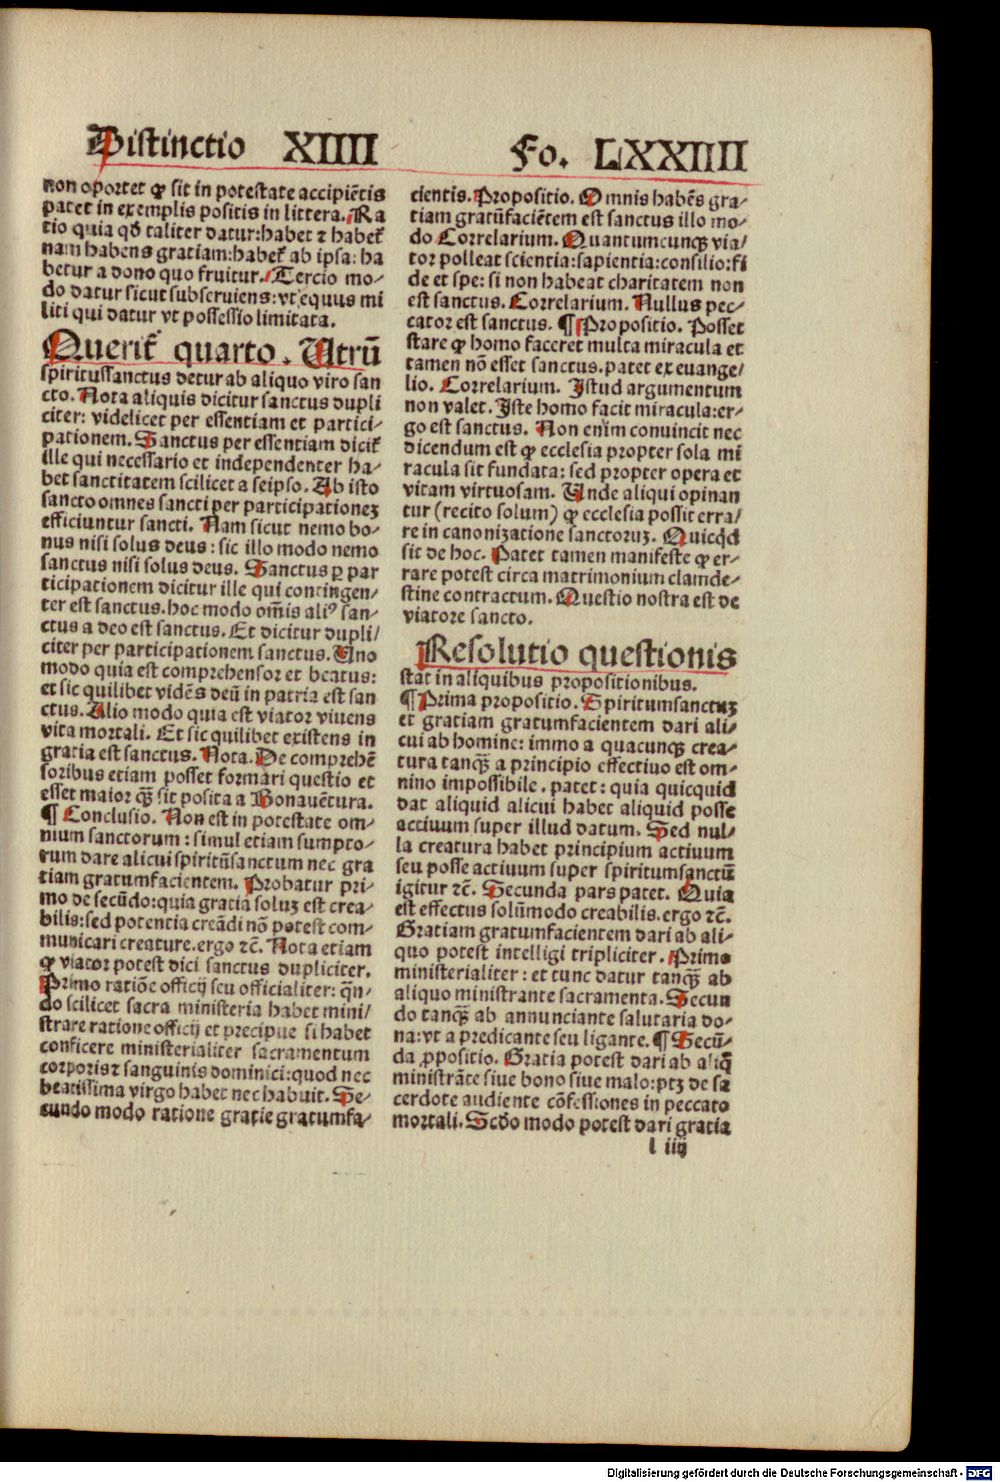 Distinctio XIIII Fo. LXXIIII
non oportet ꝙ sit in potestate accipiētis
patet in exemplis positis in littera. Ra
tio quia qđ taliter datur: habet ⁊ habet᷑
nam habens gratiam: habet᷑ ab ipsa: ha
betur a dono quo fruitur. Tercio mo-
do datur sicut subseruiens: vt equus mi
liti qui datur vt possessio limitata.
Querit᷑ quarto. Utrū
spiritussanctus detur ab aliquo viro san
cto. Nota aliquis dicitur sanctus dupli
citer: videlicet per essentiam et partici-
pationem. Sanctus per essentiam dicit᷑
ille qui necessario et independenter ha-
bet sanctitatem scilicet a seipso. Ab isto
sancto omnes sancti per participationeꝫ
efficiuntur sancti. Nam sicut nemo bo-
nus nisi solus deus: sic illo modo nemo
sanctus nisi solus deus. Sanctus ꝑ par
ticipationem dicitur ille qui contingen-
ter est sanctus. hoc modo om̄is aliꝰ san-
ctus a deo est sanctus. Et dicitur dupli/
citer per participationem sanctus. Uno
modo quia est comprehensor et beatus:
et sic quilibet vidēs deū in patria est san
ctus. Alio modo quia est viator viuens
vita mortali. Et sic quilibet existens in
gratia est sanctus. Nota. De comprehē
soribus etiam posset formari questio et
esset maior ꝙ̄ sit posita a Bonauētura.
¶ Conclusio. Non est in potestate om-
nium sanctorum: simul etiam sumpto-
rum dare alicui spiritūsanctum nec gra
tiam gratumfacientem. Probatur pri-
mo de secūdo: quia gratia soluꝫ est crea-
bilis: sed potentia creādi nō potest com-
municari creature. ergo ⁊c̄. Nota etiam
ꝙ viator potest dici sanctus dupliciter.
Primo ratiōe officij seu officialiter: qn̄-
do scilicet sacra ministeria habet mini/
strare ratione officij et precipue si habet
conficere ministerialiter sacramentum
corporis ⁊ sanguinis dominici: quod nec
beatissima virgo habet nec habuit. Se-
cundo modo ratione gratie gratumfa-
cientis. Propositio. Omnis habēs gra-
tiam gratūfaciētem est sanctus illo mo-
do Correlarium. Quantumcunqꝫ via/
tor polleat scientia: sapientia: consilio: fi
de et spe: si non habeat charitatem non
est sanctus. Correlarium. Nullus pec-
cator est sanctus. ¶ Propositio. Posset
stare ꝙ homo faceret multa miracula et
tamen nō esset sanctus. patet ex euange/
lio. Correlarium. Istud argumentum
non valet. Iste homo facit miracula: er-
go est sanctus. Non enim conuincit nec
dicendum est ꝙ ecclesia propter sola mi
racula sit fundata: sed propter opera et
vitam virtuosam. Unde aliqui opinan
tur (recito solum) ꝙ ecclesia possit erra/
re in canonizatione sanctoruꝫ. Quicqđ
sit de hoc. Patet tamen manifeste ꝙ er-
rare potest circa matrimonium clamde-
stine contractum. Questio nostra est de
viatore sancto.
Resolutio questionis
stat in aliquibus propositionibus.
¶ Prima propositio. Spiritumsanctuꝫ
et gratiam gratumfacientem dari ali-
cui ab homine: immo a quacunqꝫ crea-
tura tanqꝫ̄ a principio effectiuo est om-
nino impossibile. patet: quia quicquid
dat aliquid alicui habet aliquid posse
actiuum super illud datum. Sed nul-
la creatura habet principium actiuum
seu posse actiuum super spiritumsanctū
igitur ⁊c̄. Secunda pars patet. Quia
est effectus solūmodo creabilis. ergo ⁊c̄.
Gratiam gratumfacientem dari ab ali-
quo potest intelligi tripliciter. Primo
ministerialiter: et tunc datur tanqꝫ̄ ab
aliquo ministrante sacramenta. Secun
do tanqꝫ̄ ab annunciante salutaria do-
na: vt a predicante seu ligante. ¶ Secū-
da ꝓpositio. Gratia potest dari ab aliq̄
ministrāte siue bono siue malo: ptꝫ de sa
cerdote audiente cōfessiones in peccato
mortali. Scđo modo potest dari gratia
l iiij
Digitalisierung gefördert durch die Deutsche Forschungsgemeinschaft - DFG